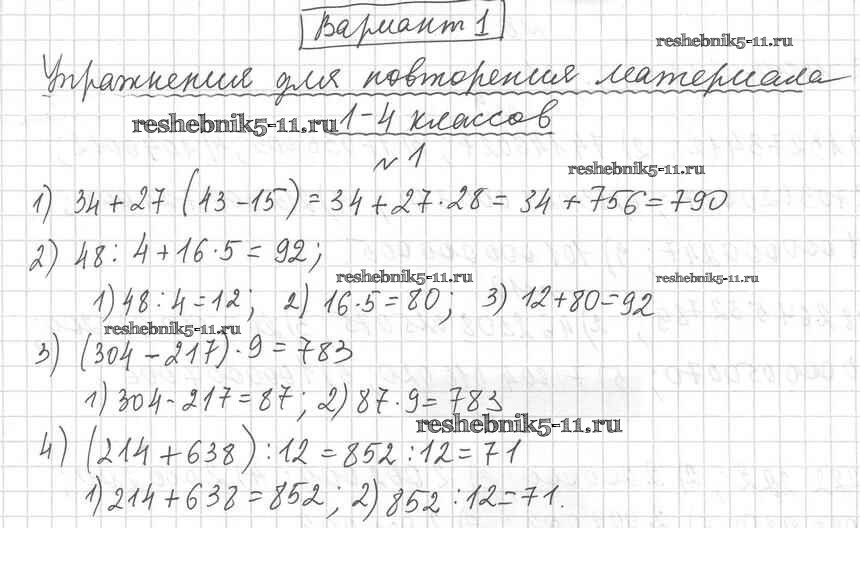 Вариант 1
reshebnik5-11.ru
Упражнения для повторения материала
reshebnik5-11.ru 1-4 классов
№1
reshebnik5-11.ru
1) 34+27(43-15)=34+27·28=34+756=790
2) 48:4+16·5=92;
reshebnik5-11.ru reshebnik5-11.ru
1) 48:4=12; 2) 16·5=80; 3) 12+80=92
reshebnik5-11.ru
3) (304-217)·9=783
1) 304-217=87; 2) 87·9=783
reshebnik5-11.ru
4) (214+638):12=852:12=71
1) 214+638=852; 2) 852:12=71.